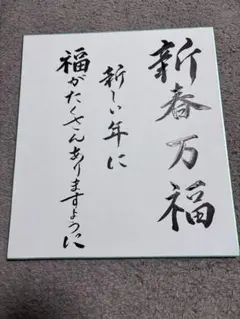 新春万福
新しい年に
福がたくさんありますように